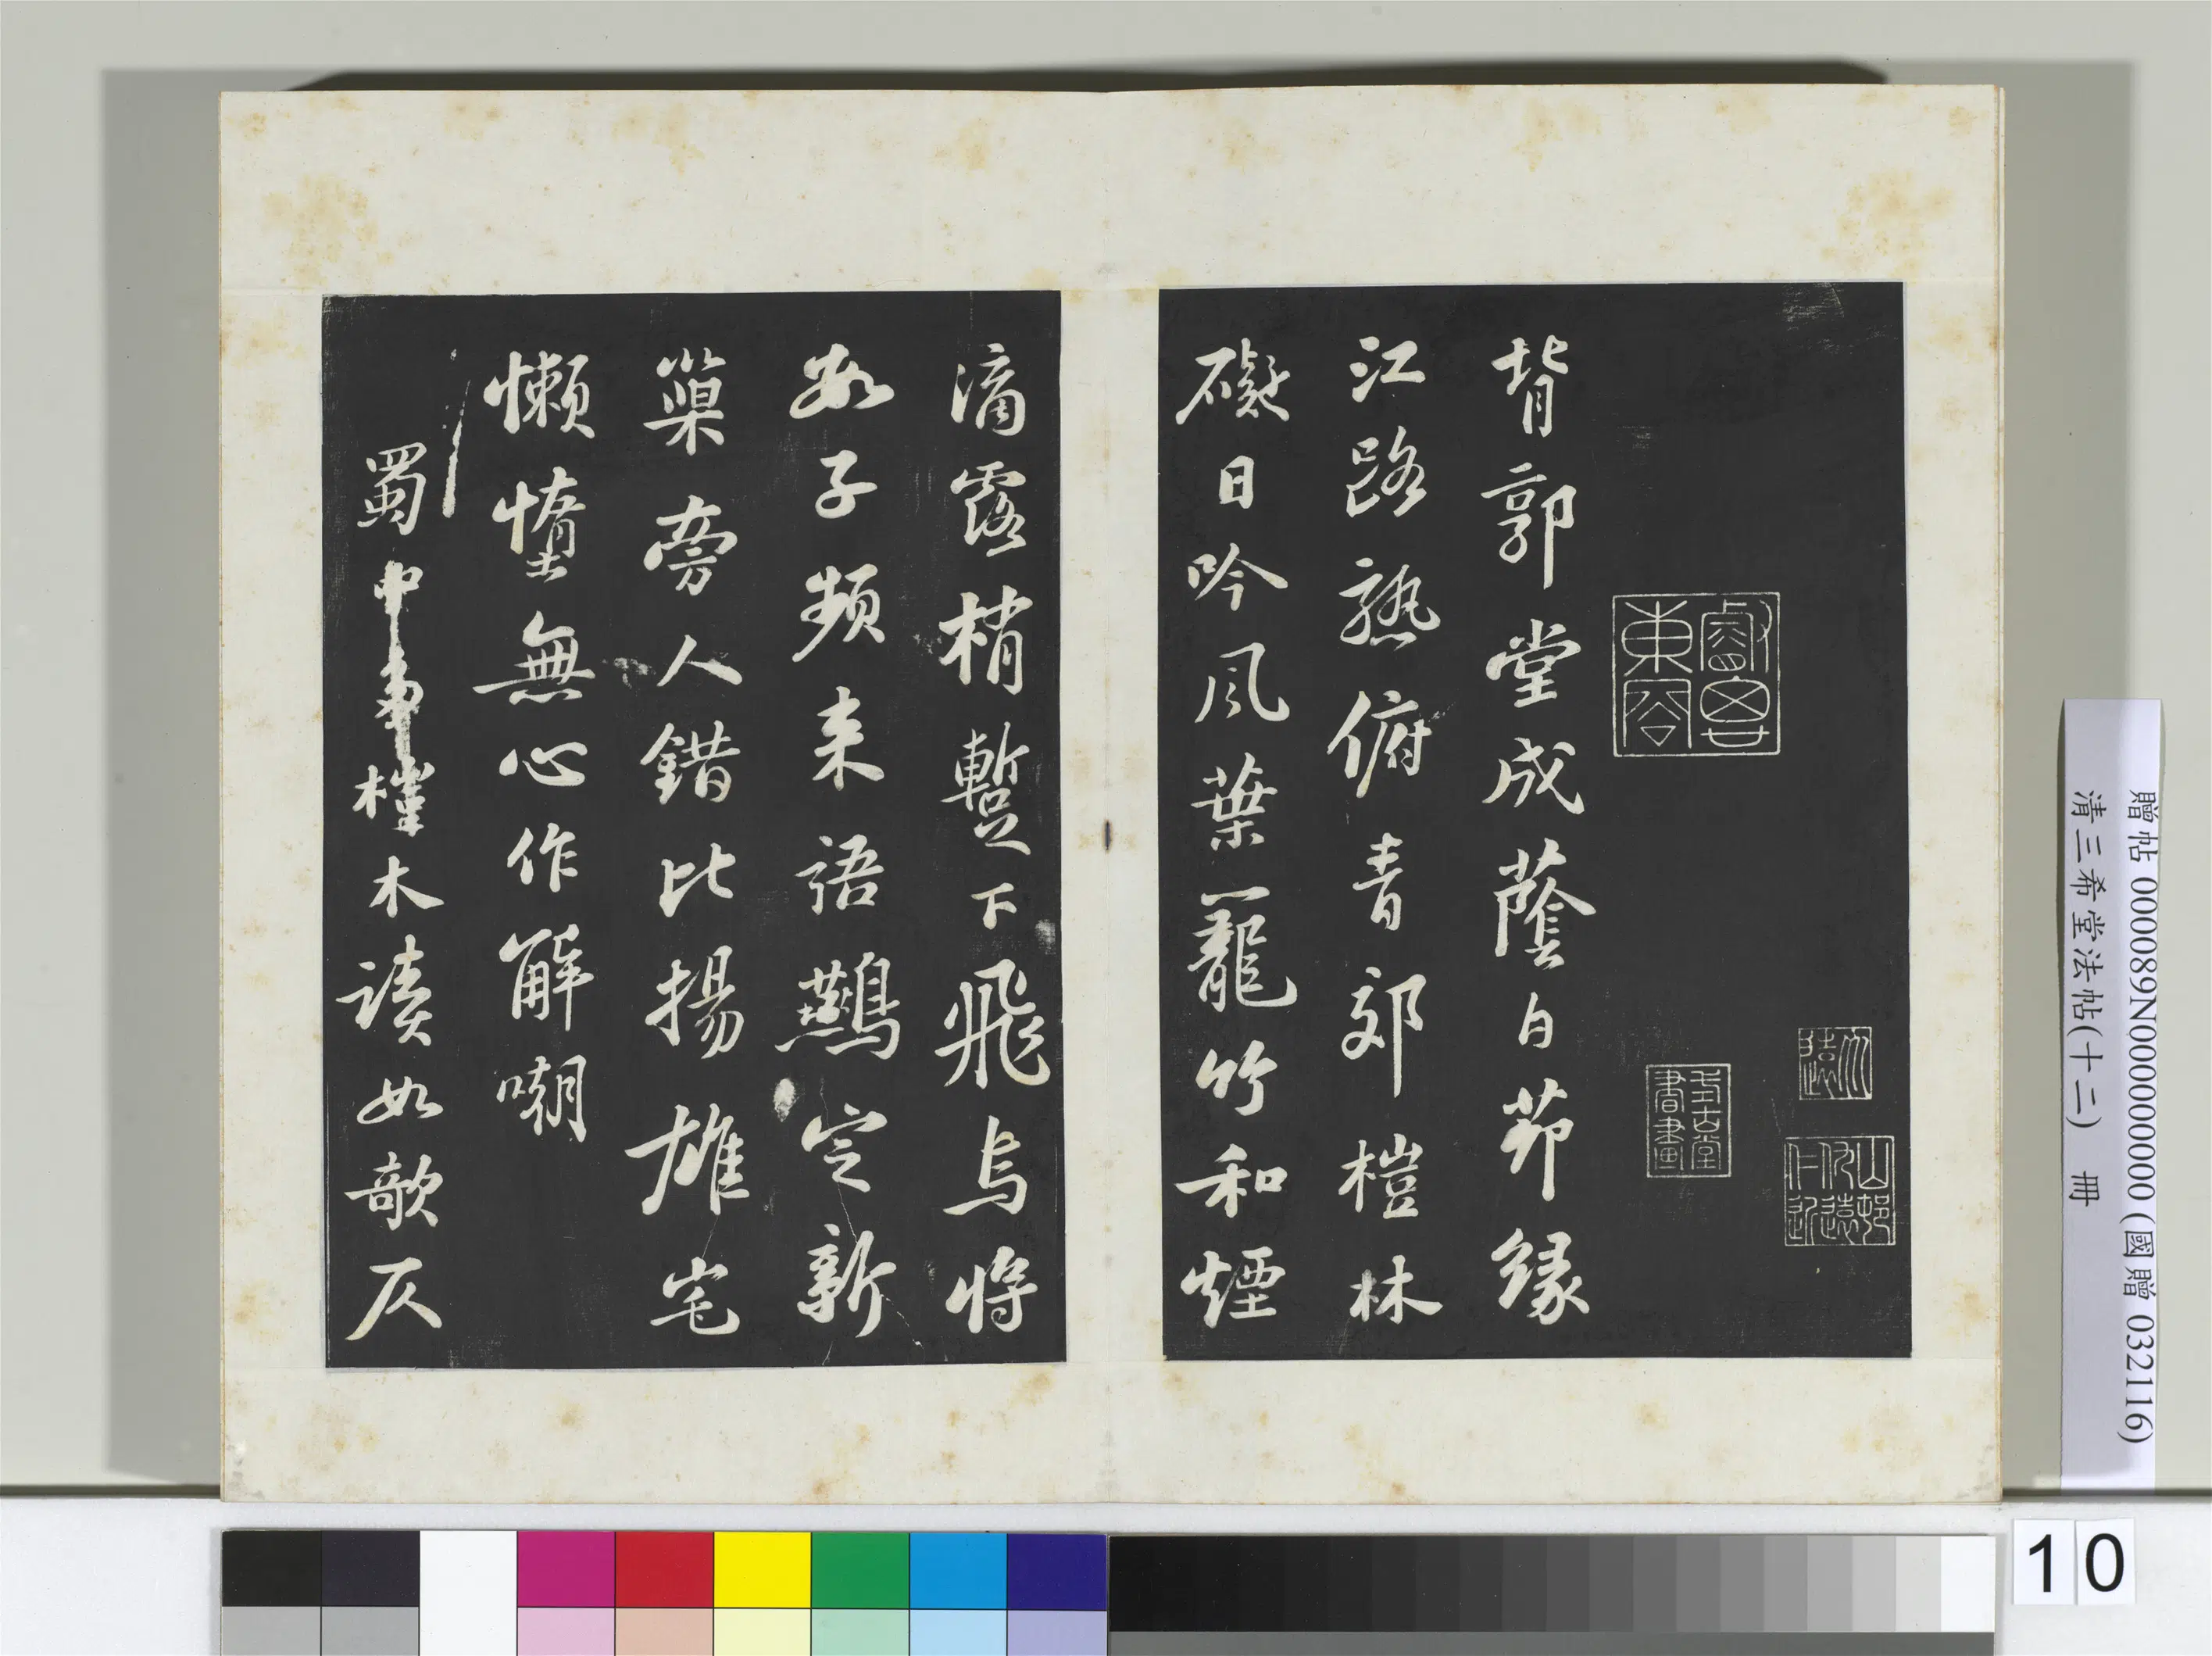 背郭堂成蔭白茆緣
江路熟俯青郊榿林
礙日吟風葉籠竹和煙
滴露梢暫下飛烏將
數子頻來語鷰定新
巢旁人錯比揚雄宅
懶惰無心作解嘲
蜀中多榿木讀如欹仄
式古堂書畫
山邨仇遠仁近
贈帖 000089N000000000 (國贈 032116)
清三希堂法帖(十二) 冊
10